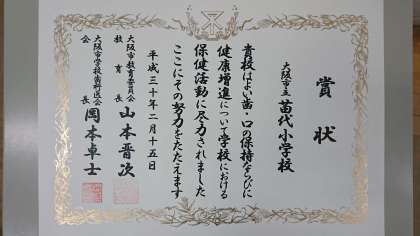 賞状
大阪市立 苗代小学校
貴校はよい歯・口の保持ならびに
健康増進について学校における
保健活動に尽力されました
ここにその努力をたたえます
平成三十年二月十五日
大阪市教育委員会
教育長 山本晋次
大阪市学校歯科医会
会長 岡本卓士